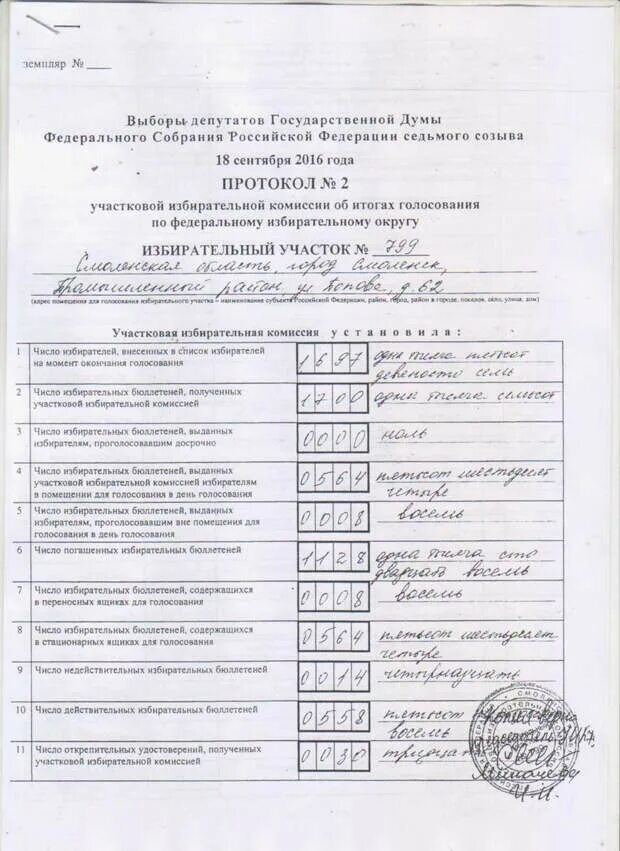 земпляр № ____
Выборы депутатов Государственной Думы
Федерального Собрания Российской Федерации седьмого созыва
18 сентября 2016 года
ПРОТОКОЛ № 2
участковой избирательной комиссии об итогах голосования
по федеральному избирательному округу
ИЗБИРАТЕЛЬНЫЙ УЧАСТОК № 799
Смоленская область, город Смоленск,
Промышленный район, ул Попова, д. 62
(адрес помещения для голосования избирательного участка – наименование субъекта Российской Федерации, район, город, район в городе, поселок, село, улица, дом)
Участковая избирательная комиссия установила:
1 Число избирателей, внесенных в список избирателей 1697 одна тысяча шестьсот
на момент окончания голосования девяносто семь
2 Число избирательных бюллетеней, полученных 1700 одна тысяча семьсот
участковой избирательной комиссией
3 Число избирательных бюллетеней, выданных 0000 ноль
избирателям, проголосовавшим досрочно
4 Число избирательных бюллетеней, выданных 0564 пятьсот шестьдесят
участковой избирательной комиссией избирателям четыре
в помещении для голосования в день голосования
5 Число избирательных бюллетеней, выданных 0008 восемь
избирателям, проголосовавшим вне помещения для
голосования в день голосования
6 Число погашенных избирательных бюллетеней 1128 одна тысяча сто
двадцать восемь
7 Число избирательных бюллетеней, содержащихся 0008 восемь
в переносных ящиках для голосования
8 Число избирательных бюллетеней, содержащихся 0564 пятьсот шестьдесят
в стационарных ящиках для голосования четыре
9 Число недействительных избирательных бюллетеней 0014 четырнадцать
10 Число действительных избирательных бюллетеней 0558 пятьсот
восемь
11 Число открепительных удостоверений, полученных 0030
участковой избирательной комиссией
Копия верна
И.И.